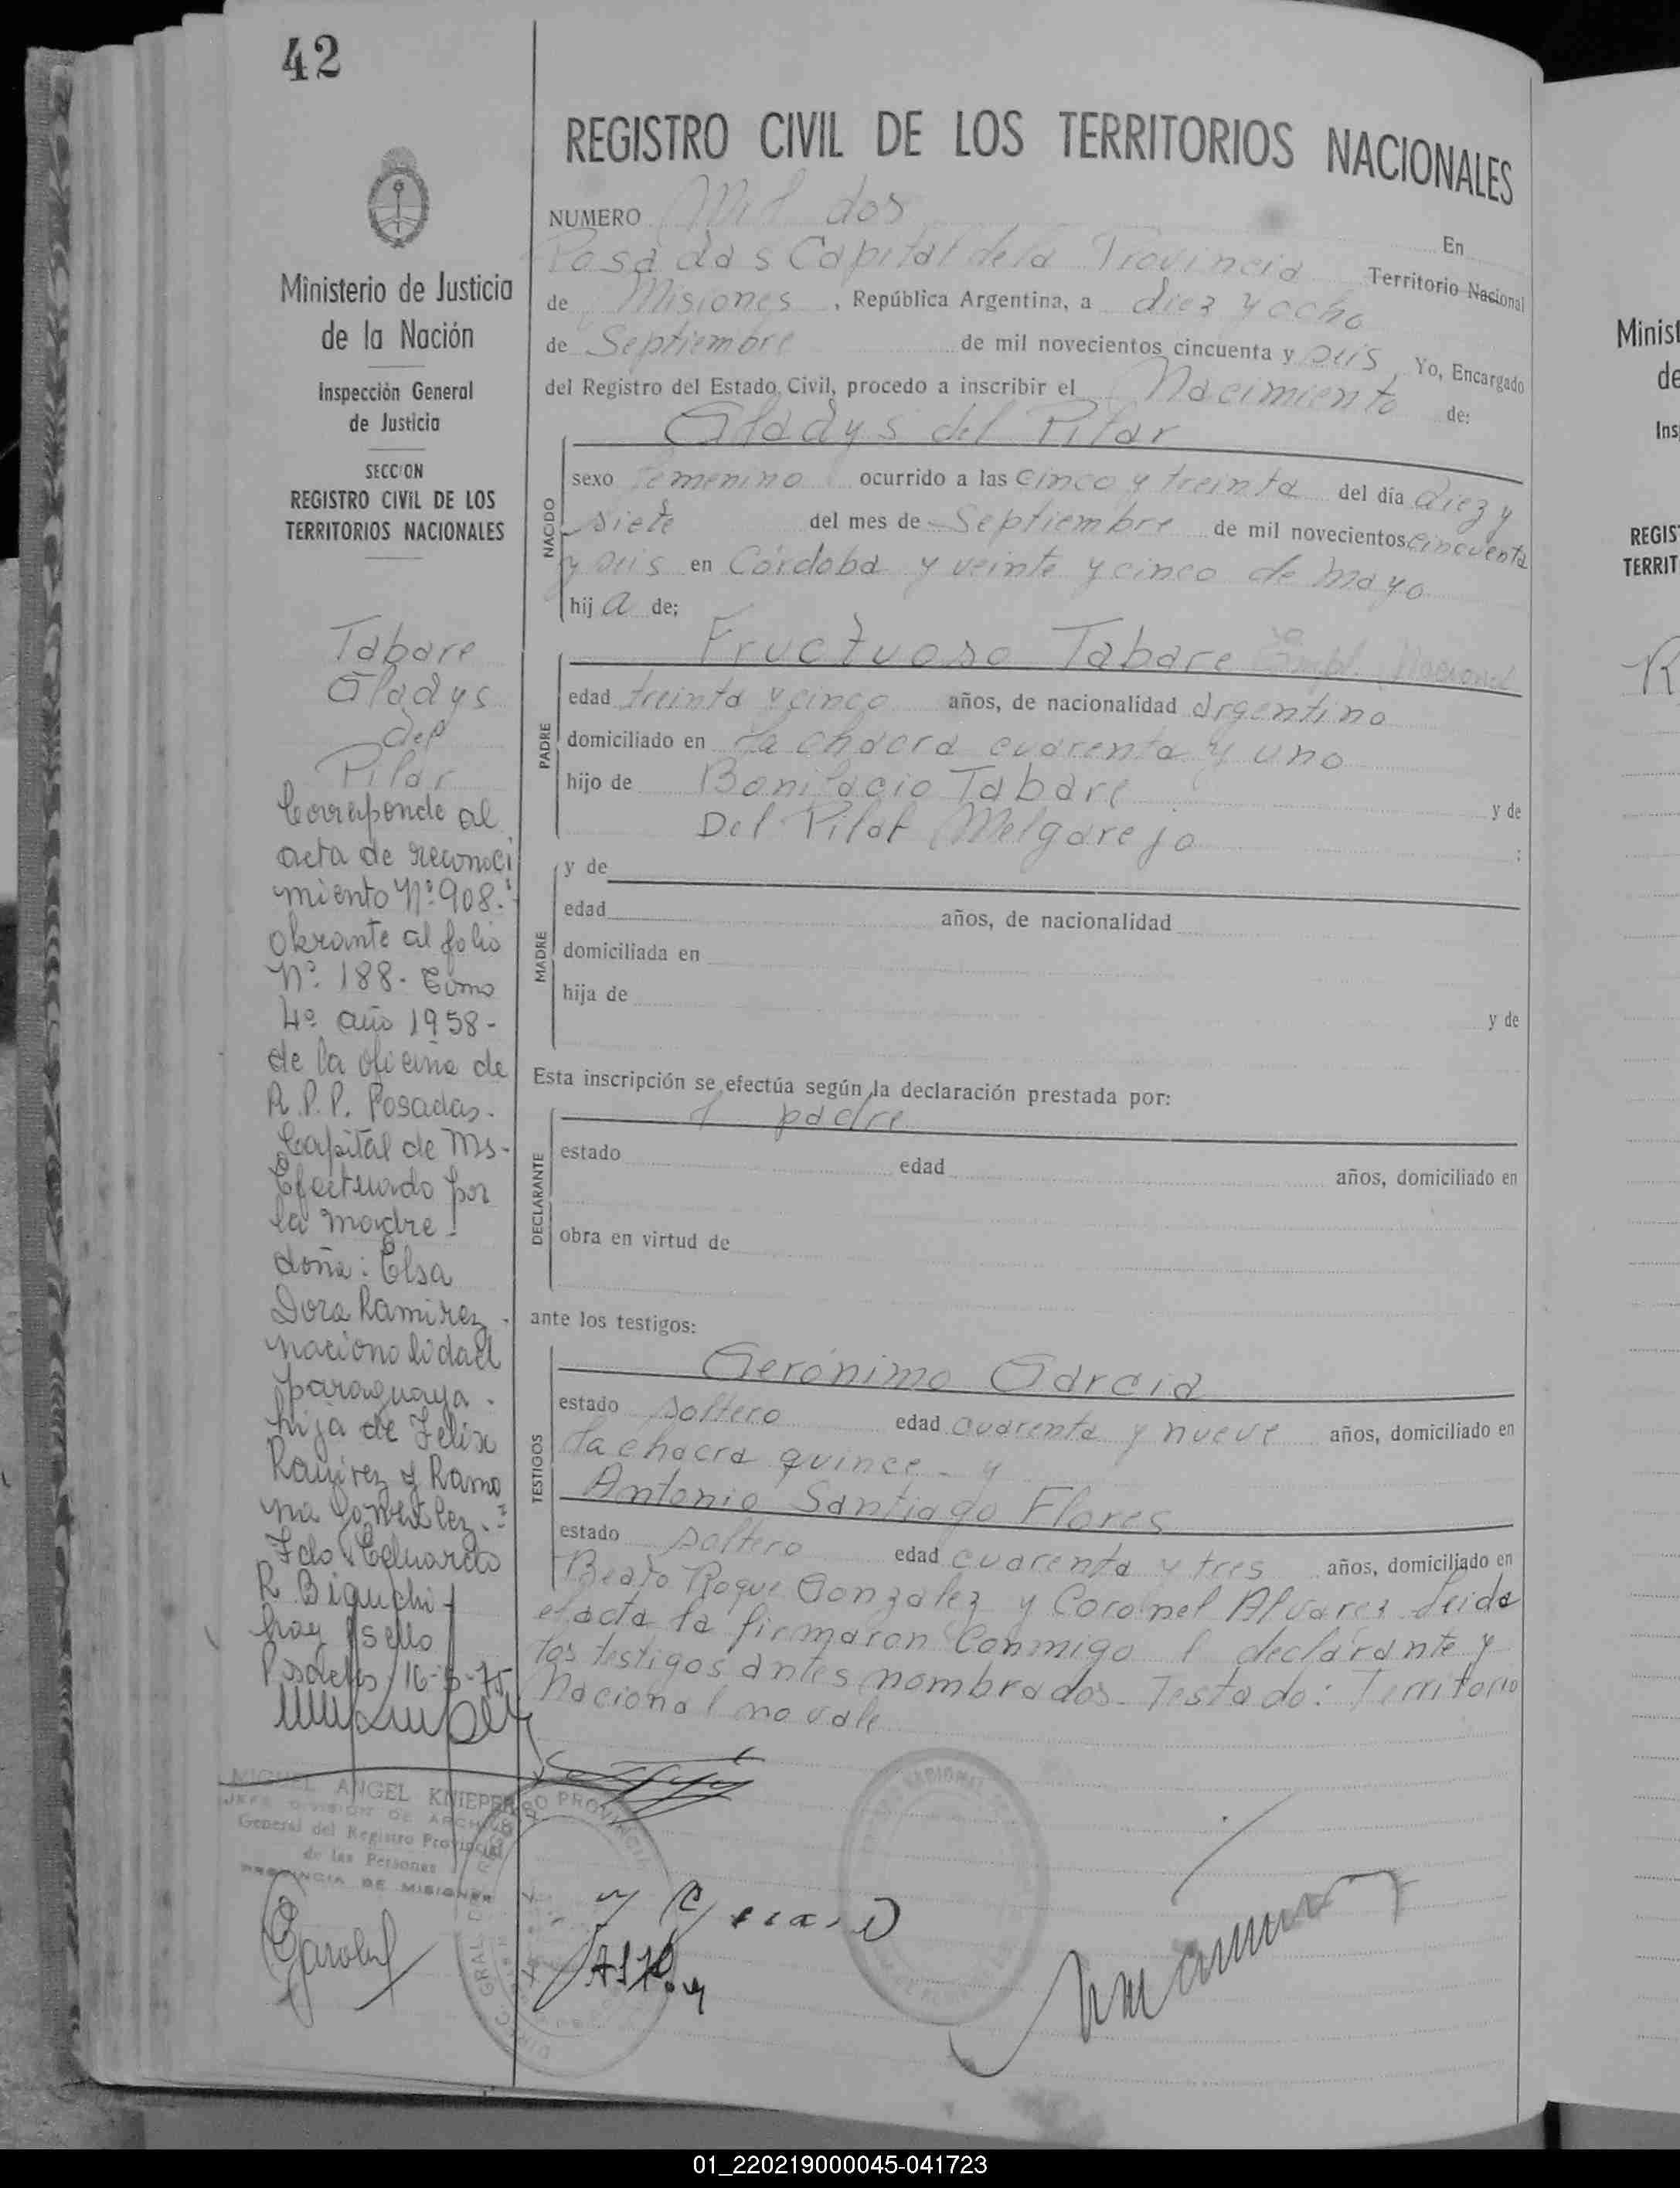 42
Ministerio de Justicia
de la Nación
Inspección General
de Justicia
SECCION
REGISTRO CIVIL DE LOS
TERRITORIOS NACIONALES
Tabare
Gladys
del
Pilar
Corresponde al
acta de reconoci
miento Nº 908.-
obrante al folio
Nº 188- Tomo
4º año 1958-
de la oficina de
R.P.P. Posadas.
Capital de Ms-
Efectuado por
la madre
doña: Elsa
Dora Ramirez.
nacionalidad
paraguaya.
hija de Felix
Ramirez y Ramo
na González.-
Fdo Eduardo
R. Bianchi-
hay sello
Posadas 16-5-75
MIGUEL ANGEL KNIEPER
JEFE DIVISION DE ARCHIVO
General del Registro Provincial
de las Personas
PROVINCIA DE MISIONES
REGISTRO CIVIL DE LOS TERRITORIOS NACIONALES
NUMERO Mil dos En
Posadas Capital de la Provincia Territorio Nacional
de Misiones, República Argentina, a diez y ocho
de Septiembre de mil novecientos cincuenta y seis, Yo, Encargado
del Registro del Estado Civil, procedo a inscribir el Nacimiento de:
Gladys del Pilar
NACIDO
sexo femenino ocurrido a las cinco y treinta del día diez y
siete del mes de Septiembre de mil novecientos cincuenta
y seis en Córdoba y veinte y cinco de mayo
hij a de;
Fructuoso Tabare Empl. Nacional
PADRE
edad treinta y cinco años, de nacionalidad argentino
domiciliado en la chacra cuarenta y uno
hijo de Bonifacio Tabare y de
Del Pilar Melgarejo :
MADRE
y de
edad años, de nacionalidad
domiciliada en
hija de
y de
Esta inscripción se efectúa según la declaración prestada por:
l padre
DECLARANTE
estado edad años, domiciliado en
obra en virtud de
ante los testigos:
Gerónimo Garcia
TESTIGOS
estado soltero edad cuarenta y nueve años, domiciliado en
la chacra quince - y
Antonio Santiago Flores
estado soltero edad cuarenta y tres años, domiciliado en
Beato Roque Gonzalez y Coronel Alvarez. Leida
el acta la firmaron conmigo l declarante y
los testigos antes nombrados. Testado: Territorio
Nacional no vale
01_220219000045-041723